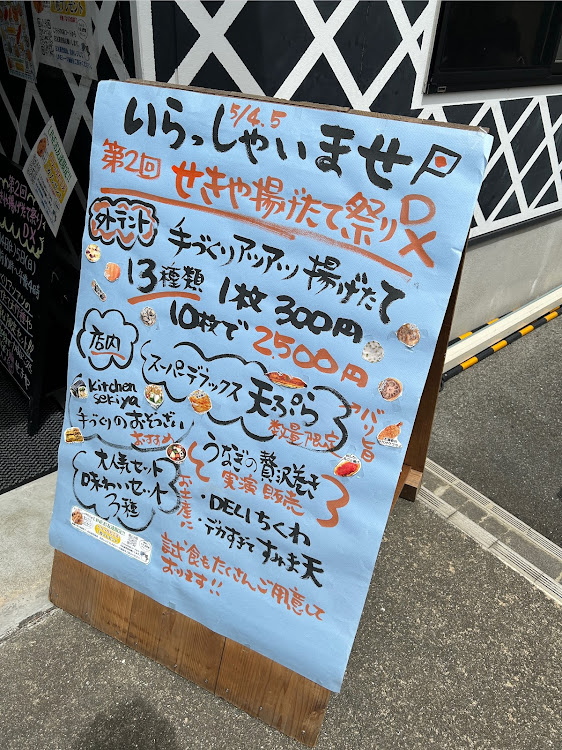 いらっしゃいませ
5/4.5
第2回 せきや揚げたて祭りDX
外テント
手づくりアツアツ揚げたて
13種類 1枚300円
10枚で2500円
店内
スーパーデラックス
天ぷら
数量限定
バリ旨
Kitchen
sekiya
手づくりのおそうざい
おすすめ
うなぎの贅沢巻き
実演販売
大人気セット
味わいセット
3種
お土産に
・DELIちくわ
・デカすぎてすいま天
試食もたくさんご用意して
おります!!
第2回